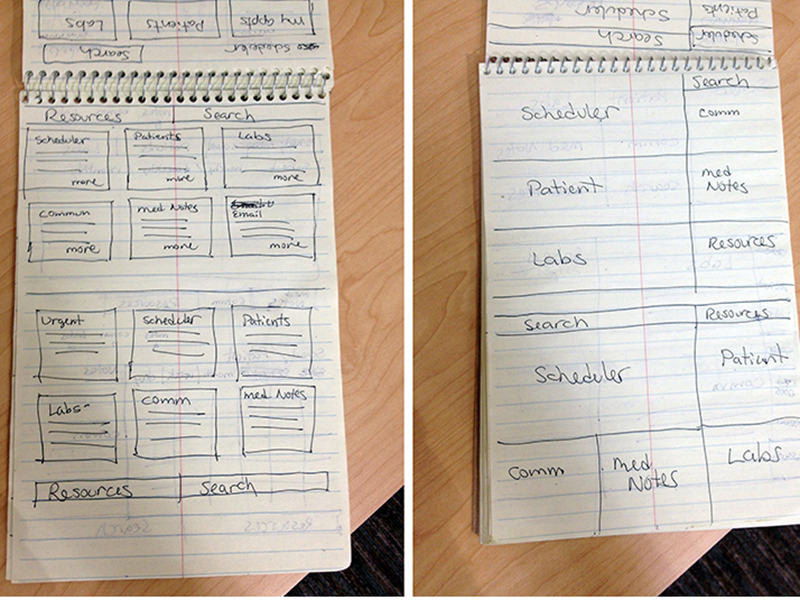 Labs Patients my appts
Search Scheduler
Resources Search
Scheduler Patients Labs
more more more
Commun med Notes Email
more more more
Urgent Scheduler Patients
Labs- Comm med Notes
Resources Search
Patients
Scheduler
Search Scheduler
Search
Scheduler Comm
Patient med
Notes
Labs Resources
Search Resources
Scheduler Patient
Comm med Labs
Notes